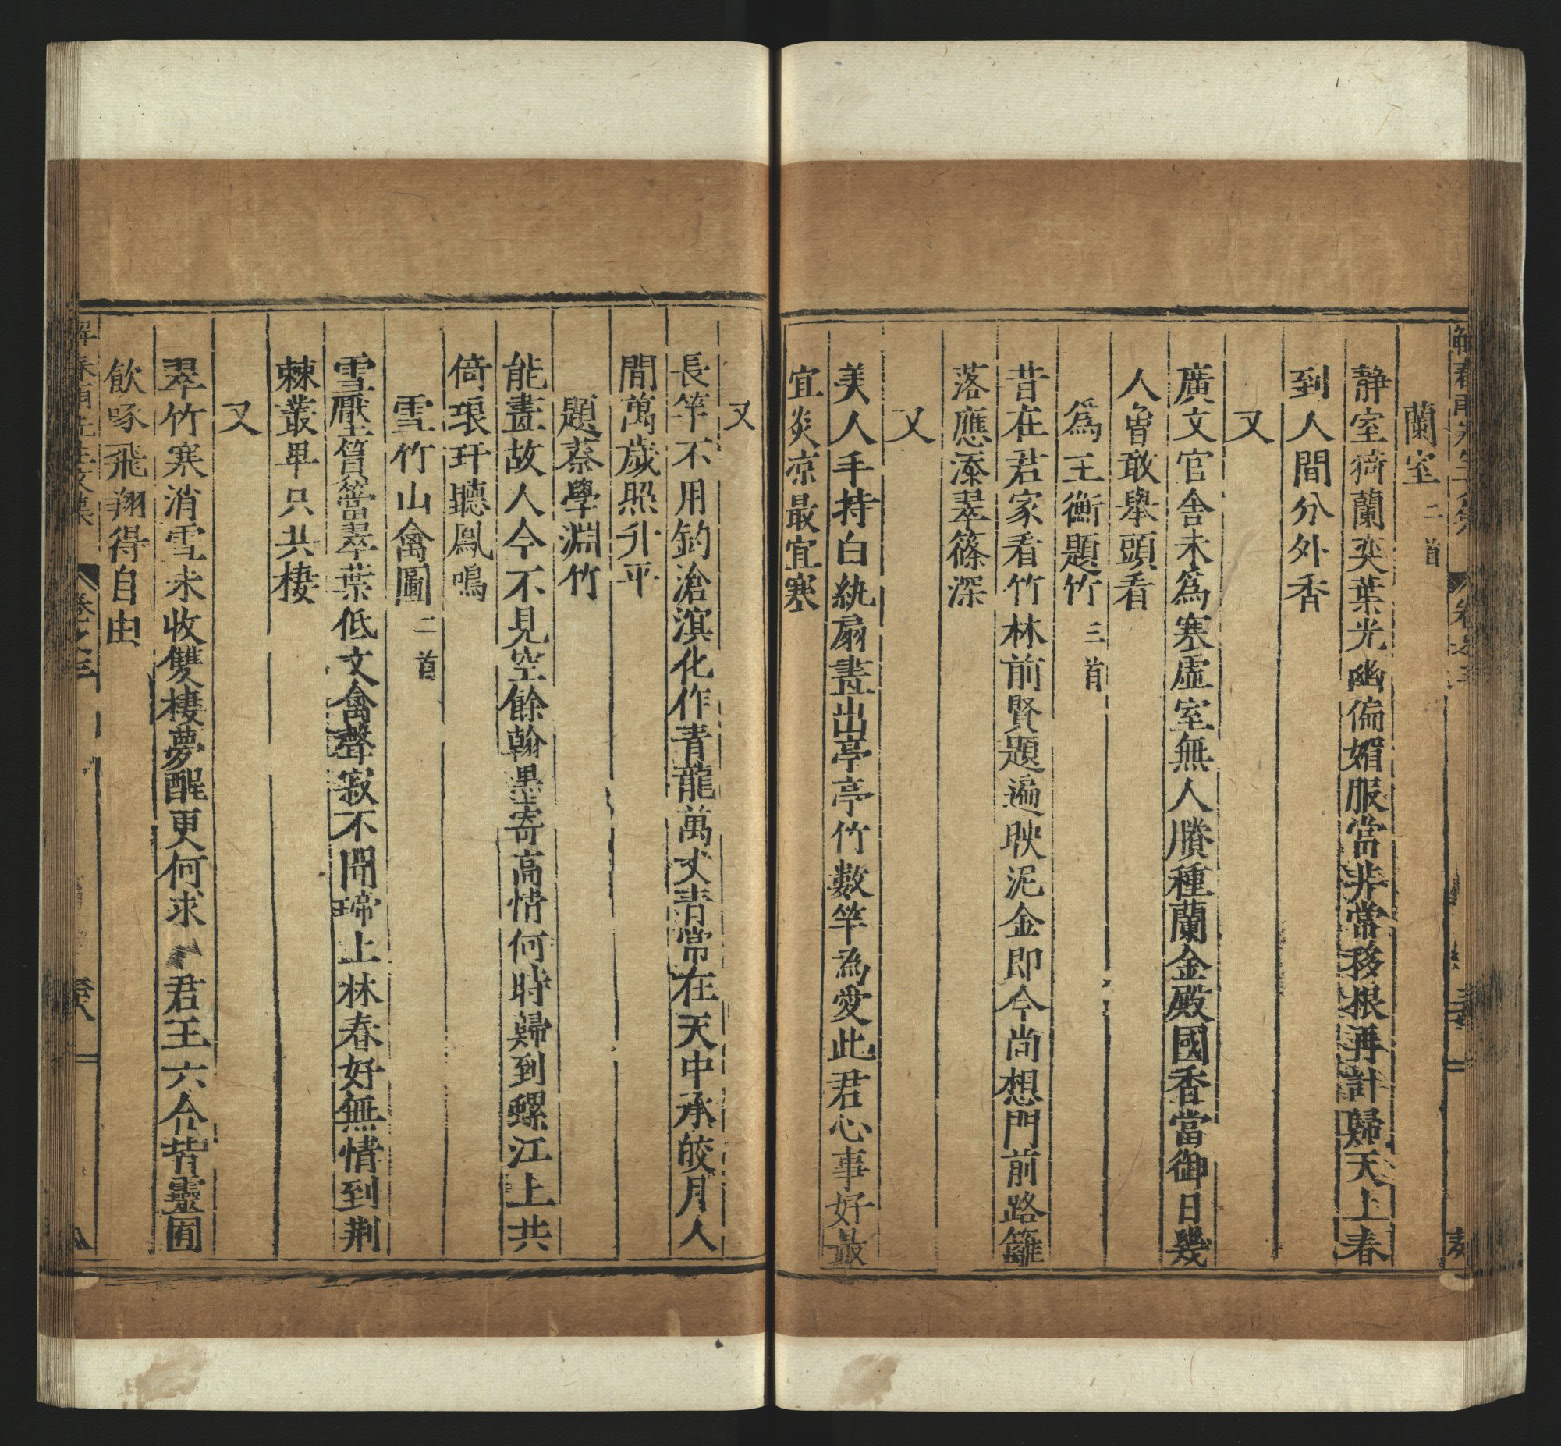 蘭室二首
静室猗蘭奕葉光幽偏媚服當非常移根再計歸天上春
到人間分外香
又
廣文官舍未為寒虛室無人賸種蘭金殿國香當御日幾
人曾敢舉頭看
為王衡題竹三首
昔在君家看竹林前賢題遍映泥金即今尚想門前路籬
落應添翠篠深
又
美人手持白紈扇畫出亭亭竹數竿為愛此君心事好最
宜炎凉最宜寒
又
長竿不用釣滄溟化作青龍萬丈青常在天中承皎月人
間萬歲照升平
題蔡學淵竹
能畫故人今不見空餘翰墨寄高情何時歸到螺江上共
倚琅玕聽鳳鳴
雪竹山禽圖二首
雪壓篔簹翠葉低文禽聲寂不聞啼上林春好無情到荆
棘叢卑只共棲
又
翠竹寒消雪未收雙棲夢醒更何求君王六合皆靈囿
飲啄飛翔得自由
卷之三